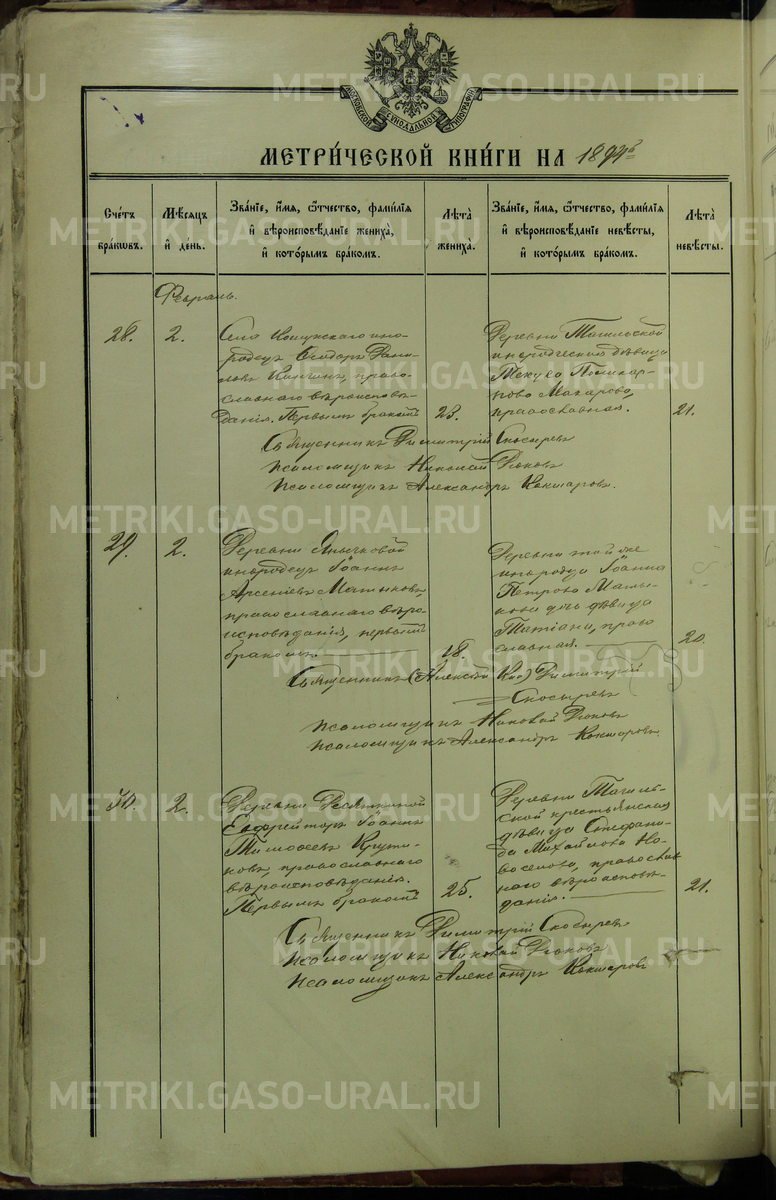 МОСКОВСКОЙ СУНОДАЛЬНОЙ ТИПОГРАФІИ
МЕТРИ́ЧЕСКОЙ КНИ́ГИ НА 189
Сче́тъ бра́кѡвъ.
Мѣ́сяцъ и҆ де́нь.
Зва́ніе, и҆́мя, ѻ҆́тчество, фами́лія и҆ вѣроисповѣ́даніе жениха̀, и҆ кото́рымъ бра́комъ.
Лѣ́та жениха̀.
Зва́ніе, и҆́мя, ѻ҆́тчество, фами́лія и҆ вѣроисповѣ́даніе невѣ́сты, и҆ кото́рымъ бра́комъ.
Лѣ́та невѣ́сты.
Февраль.
28.
2.
Села Кошукскаго ино-
родецъ Ѳеодоръ Дани-
ловъ, право-
славнаго вѣроисповѣ-
данія. Первымъ бракомъ
23.
Деревни Тагильской
инородческая дѣвица
Ѳекла Поликар-
пова Макарова,
православная.
21.
Священникъ Димитрій Скосыревъ
Псаломщикъ Николай
Псаломщикъ Александръ Кокшаровъ.
29.
2.
Деревни Янычковой
инородецъ Іоаннъ
Арсеніевъ Матыковъ
православнаго вѣро-
исповѣданія, первымъ
бракомъ.
18.
Деревни той же
инородца Іоанна
Петрова
дочь дѣвица
Татіана, право
славная.
20.
Священникъ (Алексій) Димитрій
Скосыревъ
Псаломщикъ Николай
Псаломщикъ Александръ Кокшаровъ.
30.
2.
Деревни
Ефрейторъ Іоаннъ
Тимоѳеевъ
православнаго
вѣроисповѣданія.
Первымъ бракомъ
25.
Деревни Тагиль-
ской крестьянская
дѣвица Стефани-
да Михайлова Но-
воселова, православ
наго вѣроисповѣ-
данія.
21.
Священникъ Димитрій Скосыревъ
Псаломщикъ Николай
Псаломщикъ Александръ Кокшаровъ
METRIKI.GASO-URAL.RU